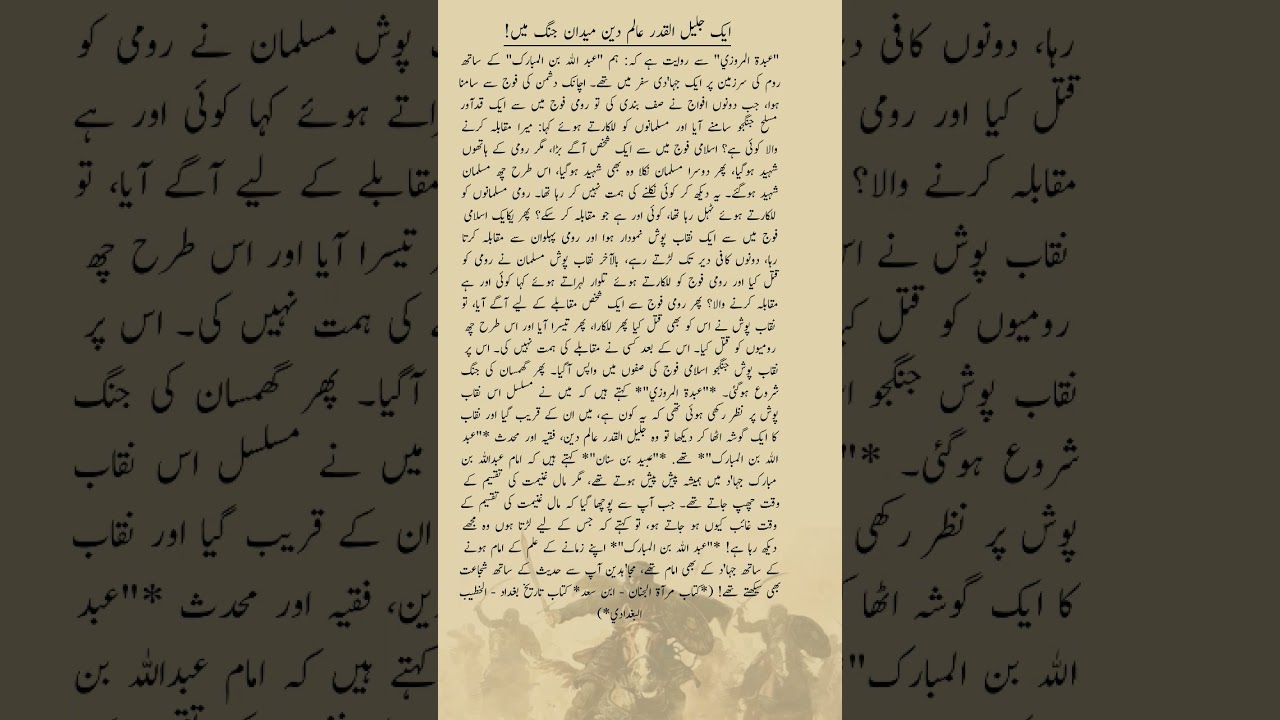 ایک جلیل القدر عالم دین میدان جنگ میں!
"عبدة المروزي" سے روایت ہے کہ: ہم "عبد اللہ بن المبارک" کے ساتھ
روم کی سرزمین پر ایک جہا'دی سفر میں تھے۔ اچانک دشمن کی فوج سے سامنا
ہوا، جب دونوں افواج نے صف بندی کی تو رومی فوج میں سے ایک قدآور
مسلح جنگجو سامنے آیا اور مسلمانوں کو للکارتے ہوئے کہا: میرا مقابلہ کرنے
والا کوئی ہے؟ اسلامی فوج میں سے ایک شخص آگے بڑا، مگر رومی کے ہاتھوں
شہید ہوگیا، پھر دوسرا مسلمان نکلا وہ بھی شہید ہوگیا، اس طرح چھ مسلمان
شہید ہوگئے۔ یہ دیکھ کر کوئی نکلنے کی ہمت نہیں کر رہا تھا۔ رومی مسلمانوں کو
للکارتے ہوئے ٹہل رہا تھا، کوئی اور ہے جو مقابلہ کر سکے؟ پھر یکایک اسلامی
فوج میں سے ایک نقاب پوش نمودار ہوا اور رومی پہلوان سے مقابلہ کرتا
رہا، دونوں کافی دیر تک لڑتے رہے، بالآخر نقاب پوش مسلمان نے رومی کو
قتل کیا اور رومی فوج کو للکارتے ہوئے تلوار لہراتے ہوئے کہا کوئی اور ہے
مقابلہ کرنے والا؟ پھر رومی فوج سے ایک شخص مقابلے کے لیے آگے آیا، تو
نقاب پوش نے اس کو بھی قتل کیا پھر للکارا، پھر تیسرا آیا اور اس طرح چھ
رومیوں کو قتل کیا۔ اس کے بعد کسی نے مقابلے کی ہمت نہیں کی۔ اس پر
نقاب پوش جنگجو اسلامی فوج کی صفوں میں واپس آگیا۔ پھر گھمسان کی جنگ
شروع ہوگئی۔ *"عبدة المروزي"* کہتے ہیں کہ میں نے مسلسل اس نقاب
پوش پر نظر رکھی ہوئی تھی کہ یہ کون ہے، میں ان کے قریب گیا اور نقاب
کا ایک گوشہ اٹھا کر دیکھا تو وہ جلیل القدر عالم دین، فقیہ اور محدث *"عبد
اللہ بن المبارک"* تھے۔ *"عبید بن سنان"* کہتے ہیں کہ امام عبداللہ بن
مبارک جہا'د میں ہمیشہ پیش پیش ہوتے تھے، مگر مال غنیمت کی تقسیم کے
وقت چھپ جاتے تھے۔ جب آپ سے پوچھا گیا کہ مال غنیمت کی تقسیم کے
وقت غائب کیوں ہو جاتے ہو، تو کہتے کہ جس کے لیے لڑتا ہوں وہ مجھے
دیکھ رہا ہے! *"عبد اللہ بن المبارک"* اپنے زمانے کے علم کے امام ہونے
کے ساتھ جہا'د کے بھی امام تھے، مجا'ہدین آپ سے حدیث کے ساتھ شجاعت
بھی سیکھتے تھے! (*کتاب مرآة الجنان - ابن سعد* کتاب تاریخ بغداد - الخطیب
البغدادي*)